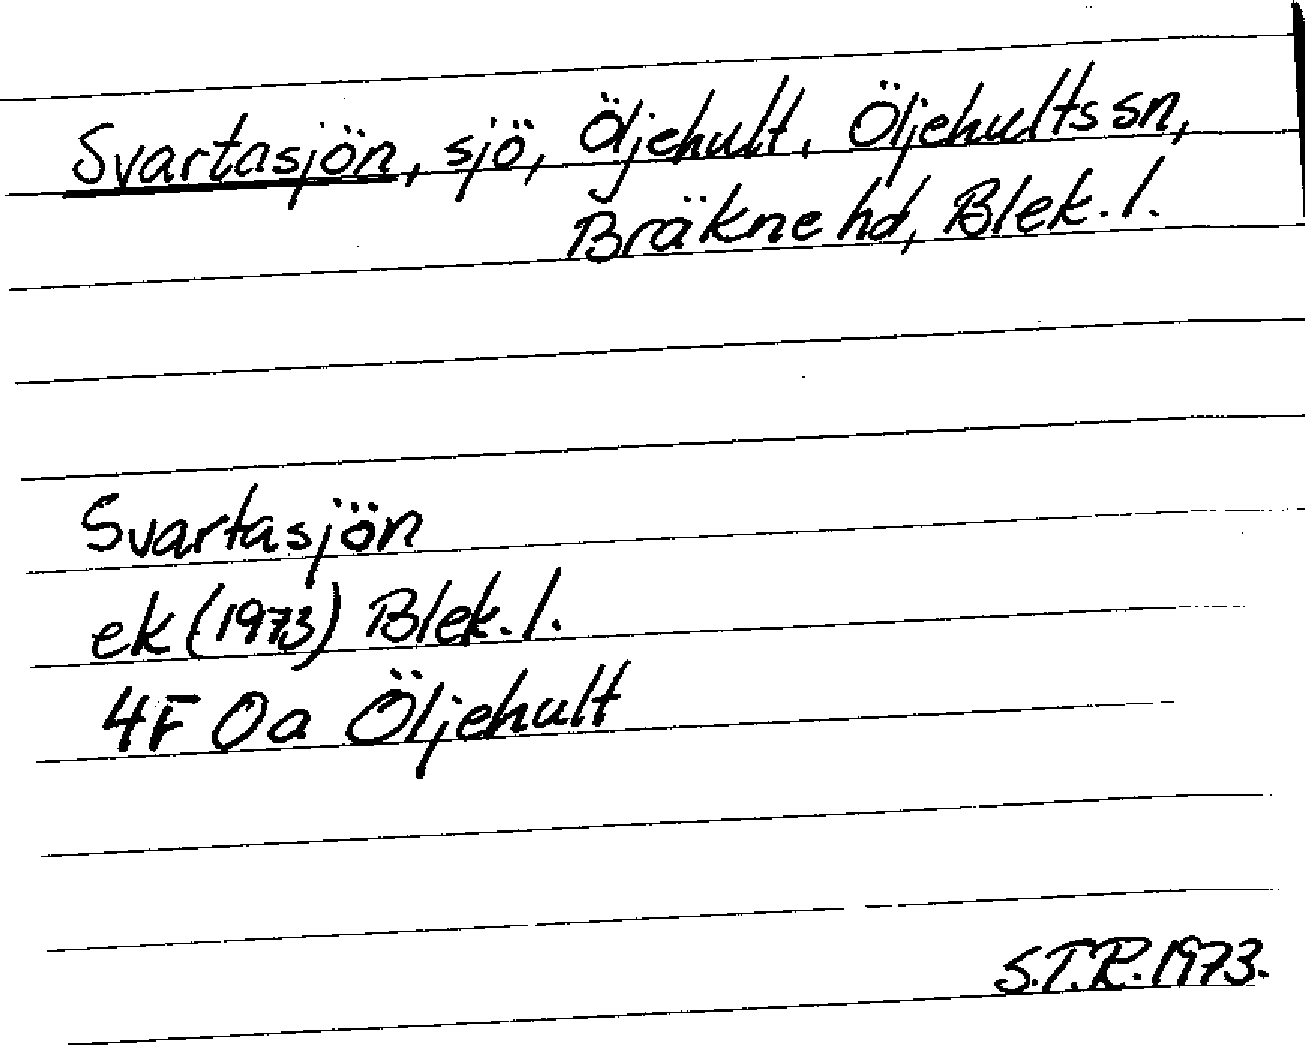 Svartasjön, sjö, Öljehult, Öljehults sn,
Bräkne hd, Blek. l.
Svartasjön
ek (1973) Blek. l.
4F 0a Öljehult
S.T.R. 1973.